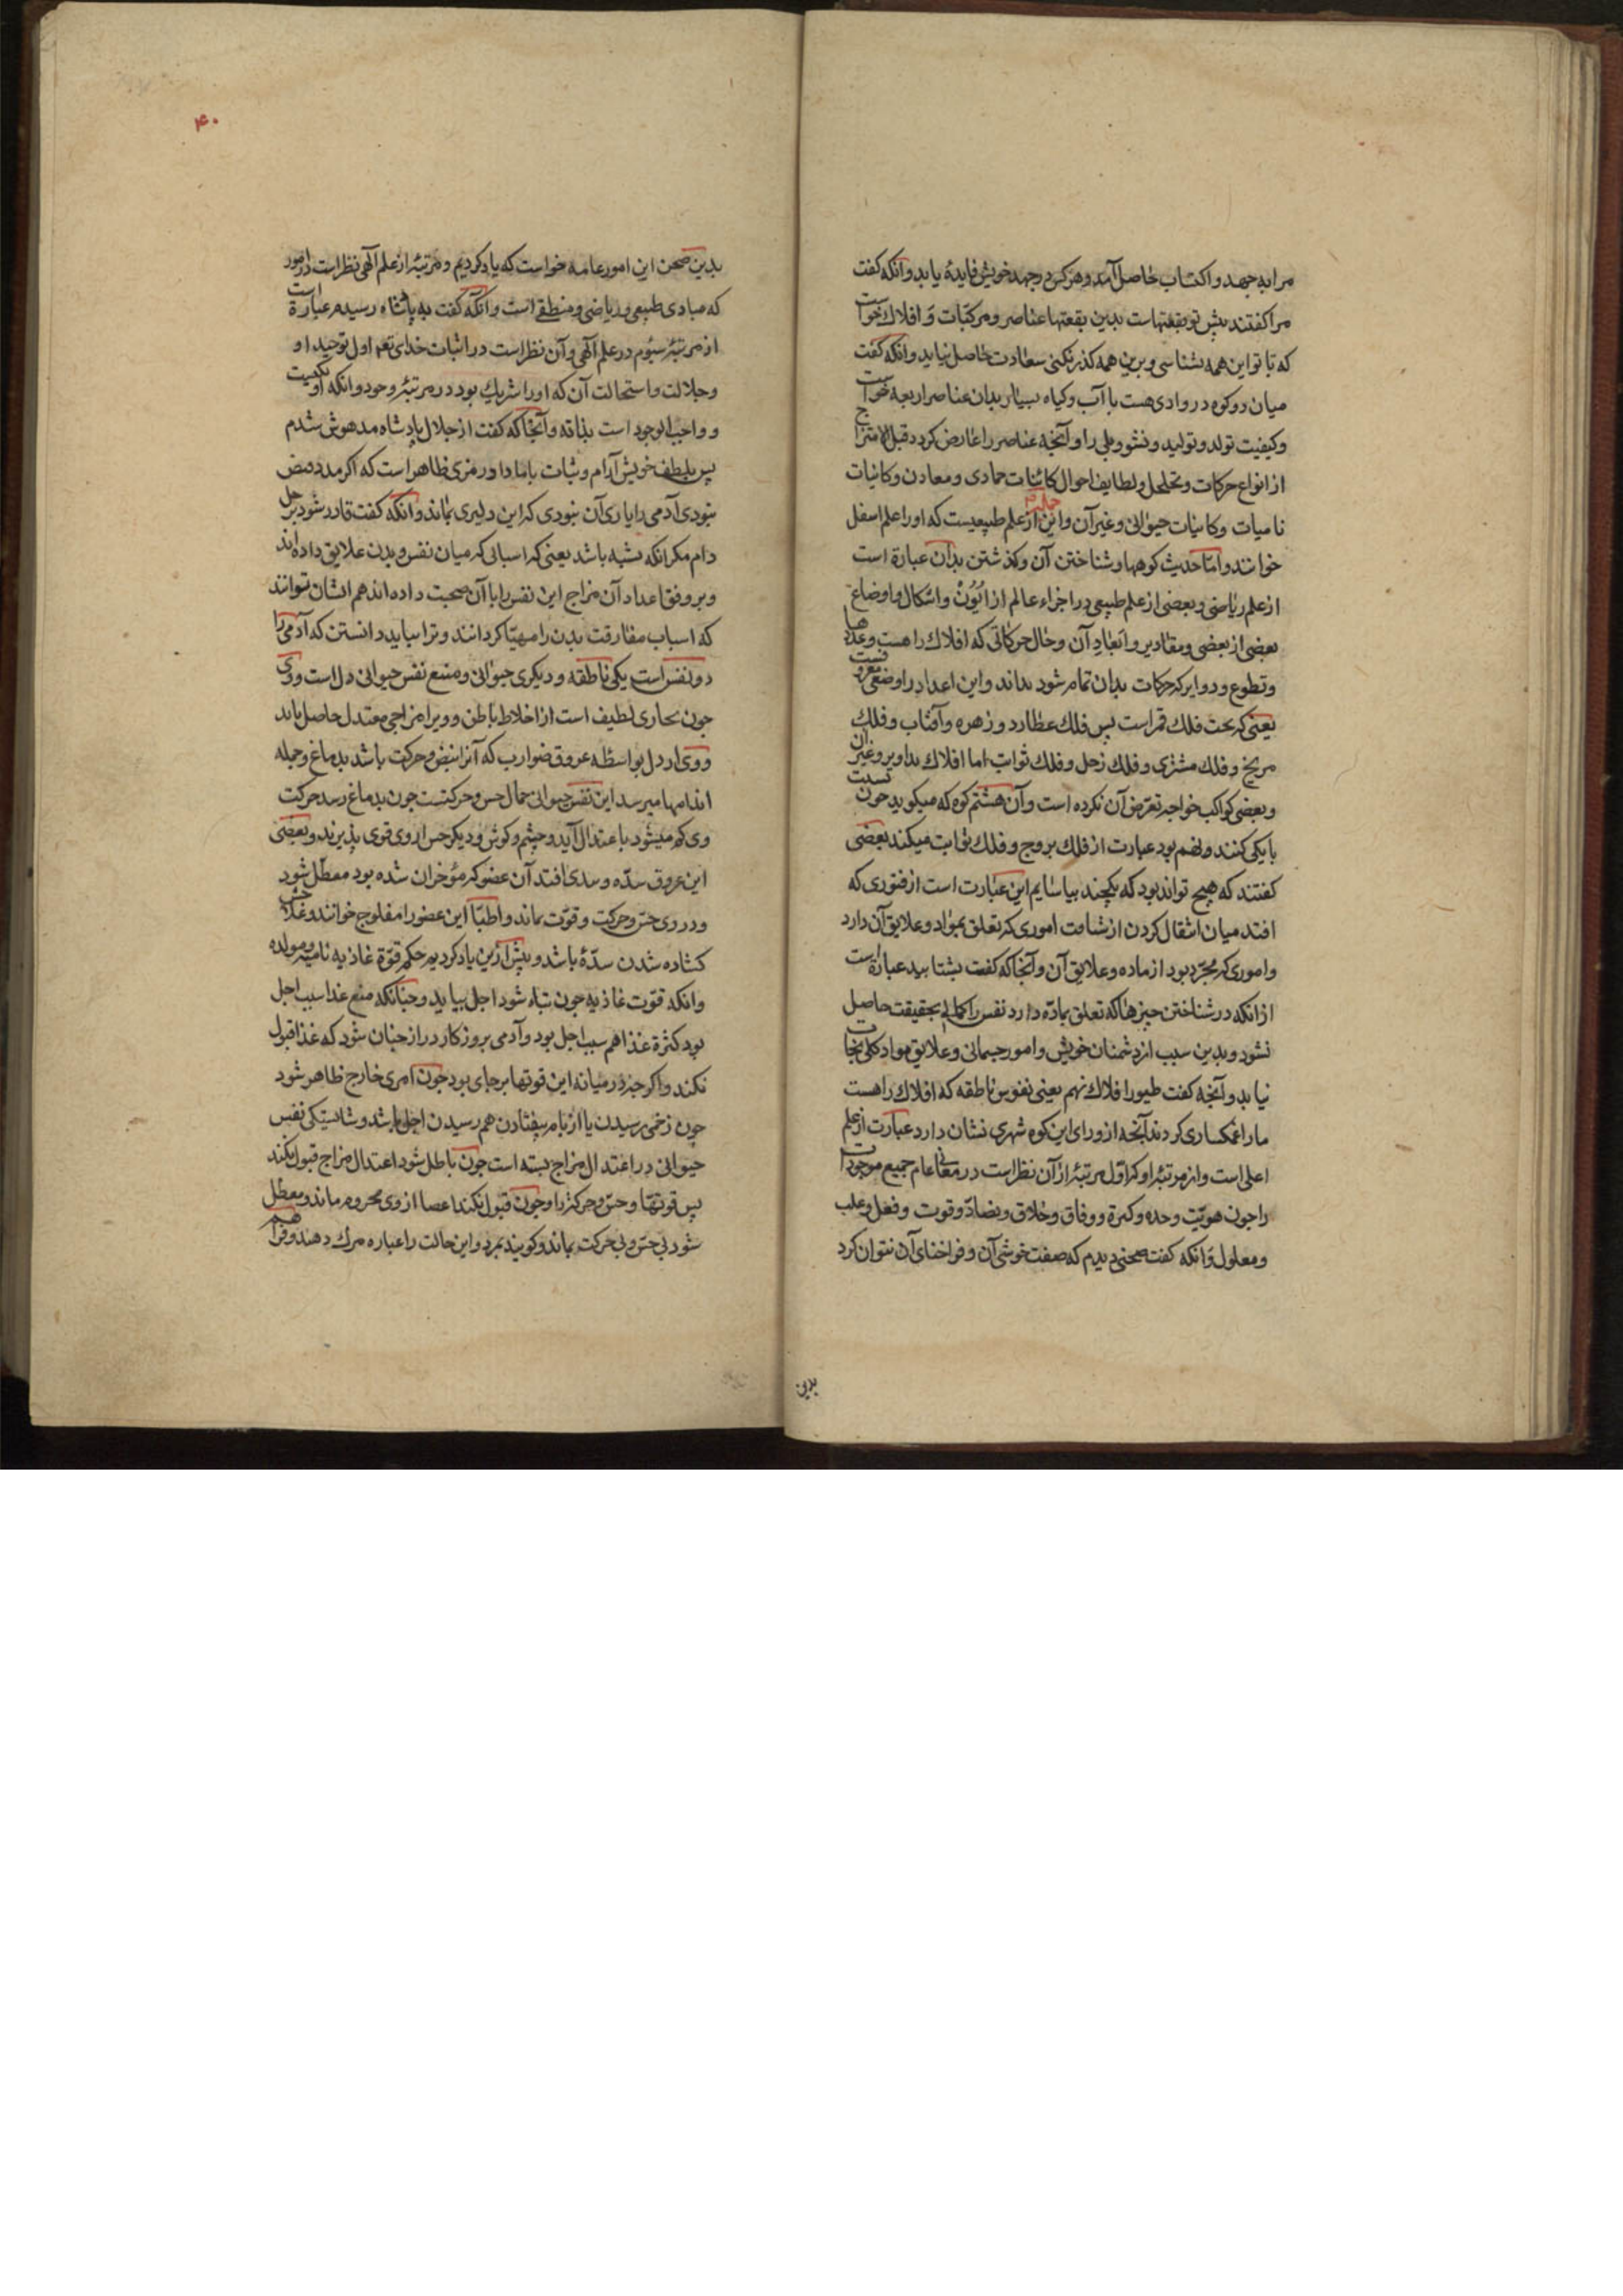 مرا به جهد و اکتساب حاصل آمد و هرکس در جهد خویش فایدهٔ یابد و انکه کفت
مرا کفتند پیش تو بقعتهاست بدین بقعتها عناصر و مرکبات و افلاک خواست
که تا تو این همه بشناسی و برین همه کذر نکنی سعادت حاصل نیاید و انکه کفت
میان دو کوه در وادی هست با آب و کیاه بسیار بدان عناصر اربعه خواست
و کیفیت تولد و تولید و نشو و بلی را و آنچه عناصر را عارض کردد قبل الامتزاج
از انواع حرکات و تخلخل و لطایف احوال کائنات جمادی و معادن و کائنات
نامیات و کاینات حیوانی و غیر آن و این جمله از علم طبیعیست که او را علم اسفل
خوانند و اما حدیث کوهها و شناختن آن و کذشتن بدان عبارة است
از علم ریاضی و بعضی از علم طبیعی در اجزاء عالم از ایُوْن و اشکال و اوضاع
بعضی از بعضی و مقادیر و ابعاد آن و حال حرکاتی که افلاک را هست و عددها
و تطوع و دوایر که حرکات بدان تمام شود بداند و این اعداد را وضعی معروفست
یعنی که تحت فلک قمر است پس فلک عطارد و زهره و آفتاب و فلک
مریخ و فلک مشتری و فلک زحل و فلک ثوابت اما افلاک تداویر و غیر آن
و بعضی کواکب خواجه تعرض آن نکرده است و آن هشتم کوه که میکوید چون نسبت
با یکی کنند و نهم بود عبارت از فلک بروج و فلک ثوابت میکند بعضی
کفتند که هیچ تواند بود که یکچند بیاسایم این عبارت است از فتوری که
افتد میان انتقال کردن از شناخت اموری که تعلق بمواد و علایق آن دارد
و اموری که مجرّد بود از ماده و علایق آن و آنجا که کفت بشتابید عبارة است
از انکه در شناختن چیزها که تعلق بمادّه دارد نفس را کمالی بحقیقت حاصل
نشود و بدین سبب از دشمنان خویش و امور جسمانی و علایق مواد کلی نجات
نیابد و آنچه کفت طیور افلاک نهم یعنی نفوس ناطقه که افلاک را هست
ما را غمکساری کردند آنچه از ورای این کوه شهری نشان دارد عبارت از علم
اعلی است و از مرتبهٔ او که اوّل مرتبهٔ از آن نظر است در معانی عام جمیع موجودات
را چون هویّت وحده و کثرة و وفاق و خلاق و تضادّ و قوت و فعل و علت
و معلول و انکه کفت صحنی دیدم که صفت خوشی آن و فراخنای آن نتوان کرد
بدین
۴۰
بدین صحن این امور عامه خواست که یاد کردیم و مرتبهٔ از علم آلهی نظر است در امور
که مبادی طبیعی و ریاضی و منطقی است و انکه کفت به پادشاه رسیدم عبارة است
از مرتبهٔ سیوم در علم آلهی و آن نظر است در اثبات خدای تعه اول توحید او
و جلالت و استحالت آن که او را شریک بود در مرتبهٔ وجود و انکه او یکیست
و واجب الوجود است بذاته و آنجا که کفت از جلال پادشاه مدهوش شدم
پس بلطف خویش آرام و ثبات باما داد رمزی ظاهر است که اکر مدد فیض
نبودی آدمی را یارای آن نبودی که این دلیری بماند و انکه کفت قادر شود بر حل
دام مکر انکه بسته باشد یعنی که اسبابی که میان نفس و بدن علایق داده اند
و بر وفق اعداد آن مزاج این نفس را با آن صحبت داده اند هم ایشان توانند
که اسباب مفارقت بدن را مهیّا کردانند و ترا بباید دانستن که آدمی را
دو نفس است یکی ناطقه و دیکری حیوانی و منبع نفس حیوانی دل است و وی
چون بخاری لطیف است از اخلاط باطن و ویرا مزاجی معتدل حاصل باید
و وی از دل بواسطه عروق ضوارب که آنرا نبض و حرکت باشد بدماغ و جمله
اندامها میرسد این نفس حیوانی حمال حس و حرکتست چون بدماغ رسد حرکت
وی کم میشود باعتدال آید و چشم و کوش و دیکر حس از وی قوی پذیرند و بعضی
این عروق سدّه و سدی افتد آن عضو که مؤخر آن شده بود معطّل شود
و در وی حسّ و حرکت و قوّت نماند و اطبّا این عضو را مفلوج خوانند و علاجش
کشاده شدن سدّهٔ باشد و پیش ازین یاد کردیم حکم قوّة غاذیه نامیه و مولده
و انکه قوّت غاذیه چون تباه شود اجل بیاید و چنانکه منع غذا سبب اجل
بود کثرة غذا هم سبب اجل بود و آدمی بروزکار دراز چنان شود که غذا قبول
نکند و اکر چه در میانه این قوتها بر جای بود چون امری خارج ظاهر شود
چون زخمی رسیدن یا از بام بیفتادن هم رسیدن اجل باشد و شایستکی نفس
حیوانی در اعتدال مزاج بسته است چون باطل شود اعتدال مزاج قبول نکند
پس قوتها و حسّ و حرکة را و چون قبول نکند اعضا از وی محروم ماند و معطل
شود بی حسّ و بی حرکت بماند و کویند بمرد و این حالت را عباره مرک دهند و فراهم